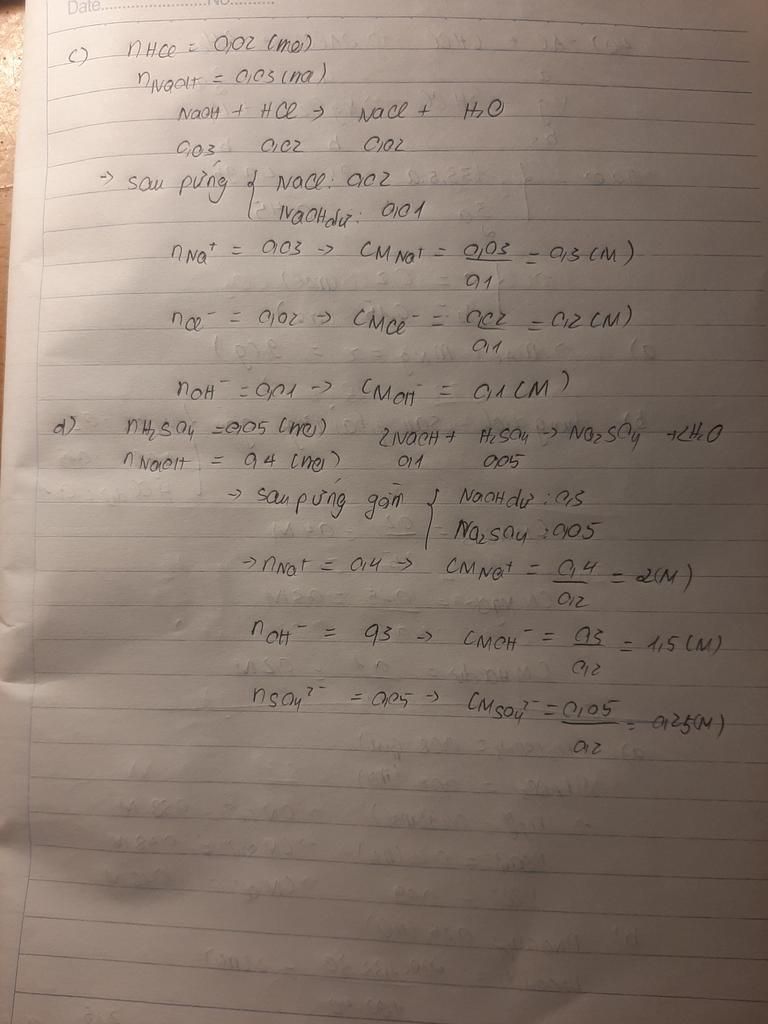 Date.....................No...........
c) nHCl = 0,02 (mol)
nNaOH = 0,03 (mol)
NaOH + HCl → NaCl + H2O
0,03 0,02 0,02
→ sau pứng { NaCl: 0,02
NaOH dư: 0,01
nNa+ = 0,03 → CM Na+ = 0,03/0,1 = 0,3 (M)
nCl- = 0,02 → CM Cl- = 0,02/0,1 = 0,2 (M)
nOH- = 0,01 → CM OH- = 0,1 (M)
d) nH2SO4 = 0,05 (mol) 2NaOH + H2SO4 → Na2SO4 + 2H2O
nNaOH = 0,4 (mol) 0,1 0,05
→ sau pứng gồm { NaOH dư: 0,3
Na2SO4: 0,05
→ nNa+ = 0,4 → CM Na+ = 0,4/0,2 = 2(M)
nOH- = 0,3 → CM OH- = 0,3/0,2 = 1,5 (M)
nSO4 2- = 0,05 → CM SO4 2- = 0,05/0,2 = 0,25(M)